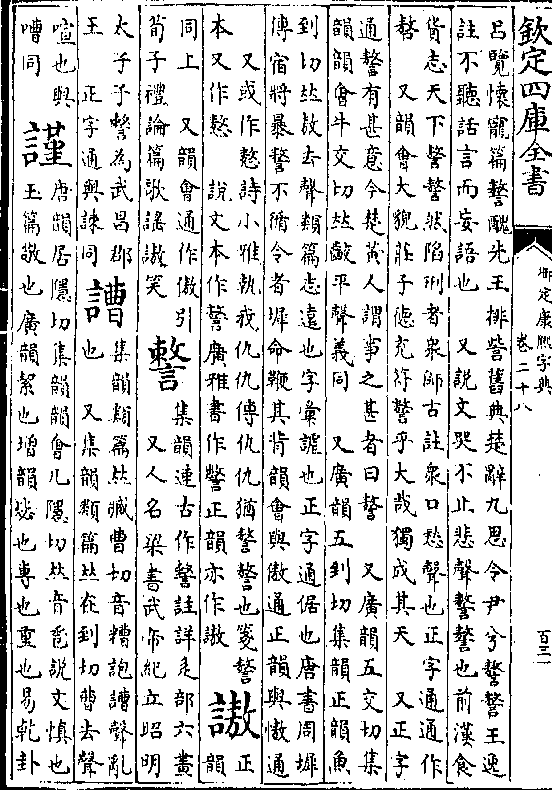 欽定四庫全書
御定康熙字典
卷二十八
百三一
呂覽懷寵篇謷醜先王排訾舊典楚辭九思令尹兮謷謷王逸
註不聽話言而妄語也 又說文哭不止悲聲謷謷也前漢食
貨志天下謷謷然陷刑者衆師古註衆口愁聲也正字通通作
嗸 又韻會大貌莊子德充符謷乎大哉獨成其天 又正字
通謷有甚意今楚黃人謂事之甚者曰謷 又廣韻五交切集
韻韻會牛交切𠀤敲平聲義同 又廣韻五到切集韻正韻魚
到切𠀤敖去聲類篇志遠也字彙謔也正字通倨也唐書周墀
傳宿將暴謷不循令者墀命鞭其背韻會與傲通正韻與慠通
又或作慜詩小雅執我仇仇傳仇仇猶謷謷也箋謷 正
本又作慜 說文本作謷廣雅書作謷正韻亦作謸
謸 韻
同上 又韻會通作傲引
荀子禮論篇歌謠謸笑
謷 集韻速古作謷註詳辵部六畫
又人名梁書武帝紀立昭明
太子子謷為武昌郡
王 正字通與諫同
譄 集韻類篇𠀤臧曹切音糟詑譄聲亂
也 又集韻類篇𠀤在到切曹去聲
喧也與
嘈同
謹 唐韻居隱切集韻韻會几隱切𠀤音巹說文慎也
玉篇敬也廣韻絜也增韻毖也專也重也易乾卦